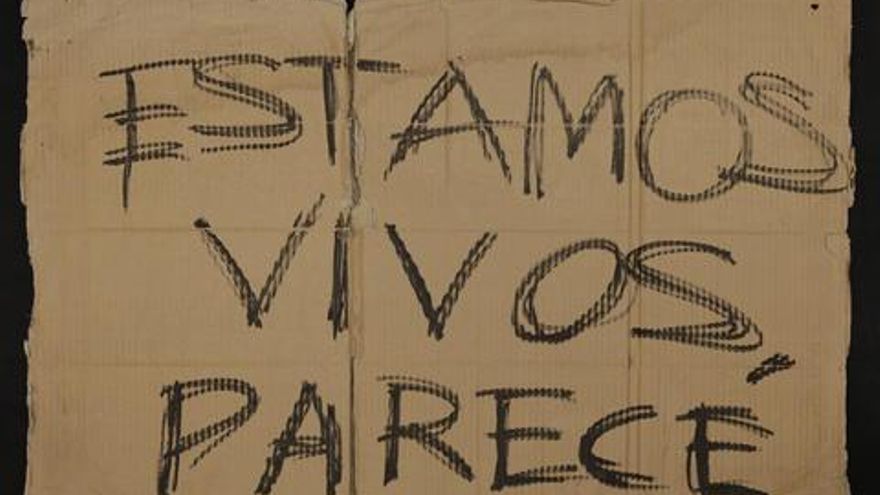 ESTAMOS
VIVOS
PARECÉ